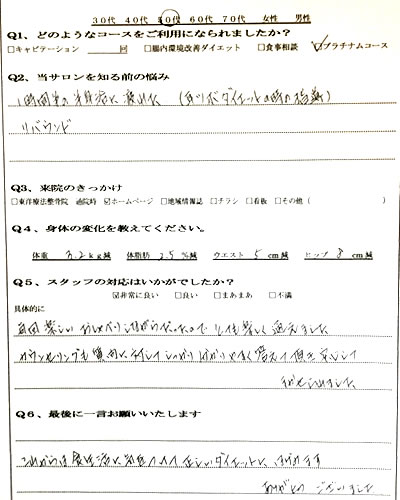 30代 40代 50代 60代 70代 女性 男性
Q1、どのようなコースをご利用になられましたか?
□キャビテーション 回 □腸内環境改善ダイエット □食事相談 ☑プラチナムコース
Q2、当サロンを知る前の悩み
リバウンド
Q3、来院のきっかけ
□東洋療法整骨院 通院時 ☑ホームページ □地域情報誌 □チラシ □看板 □その他( )
Q4、身体の変化を教えてください。
体重 3.2kg減 体脂肪 2.5%減 ウエスト 5cm減 ヒップ 8cm減
Q5、スタッフの対応はいかがでしたか?
☑非常に良い □良い □まあまあ □不満
具体的に
毎回楽しいおしゃべりしながらだったのでとても楽しく通えました
カウンセリングも質問に対してしっかり分かりやすく答えて頂き安心して
Q6、最後に一言お願いいたします
これからは食生活に気をつけて正しいダイエットに
ありがとうございました